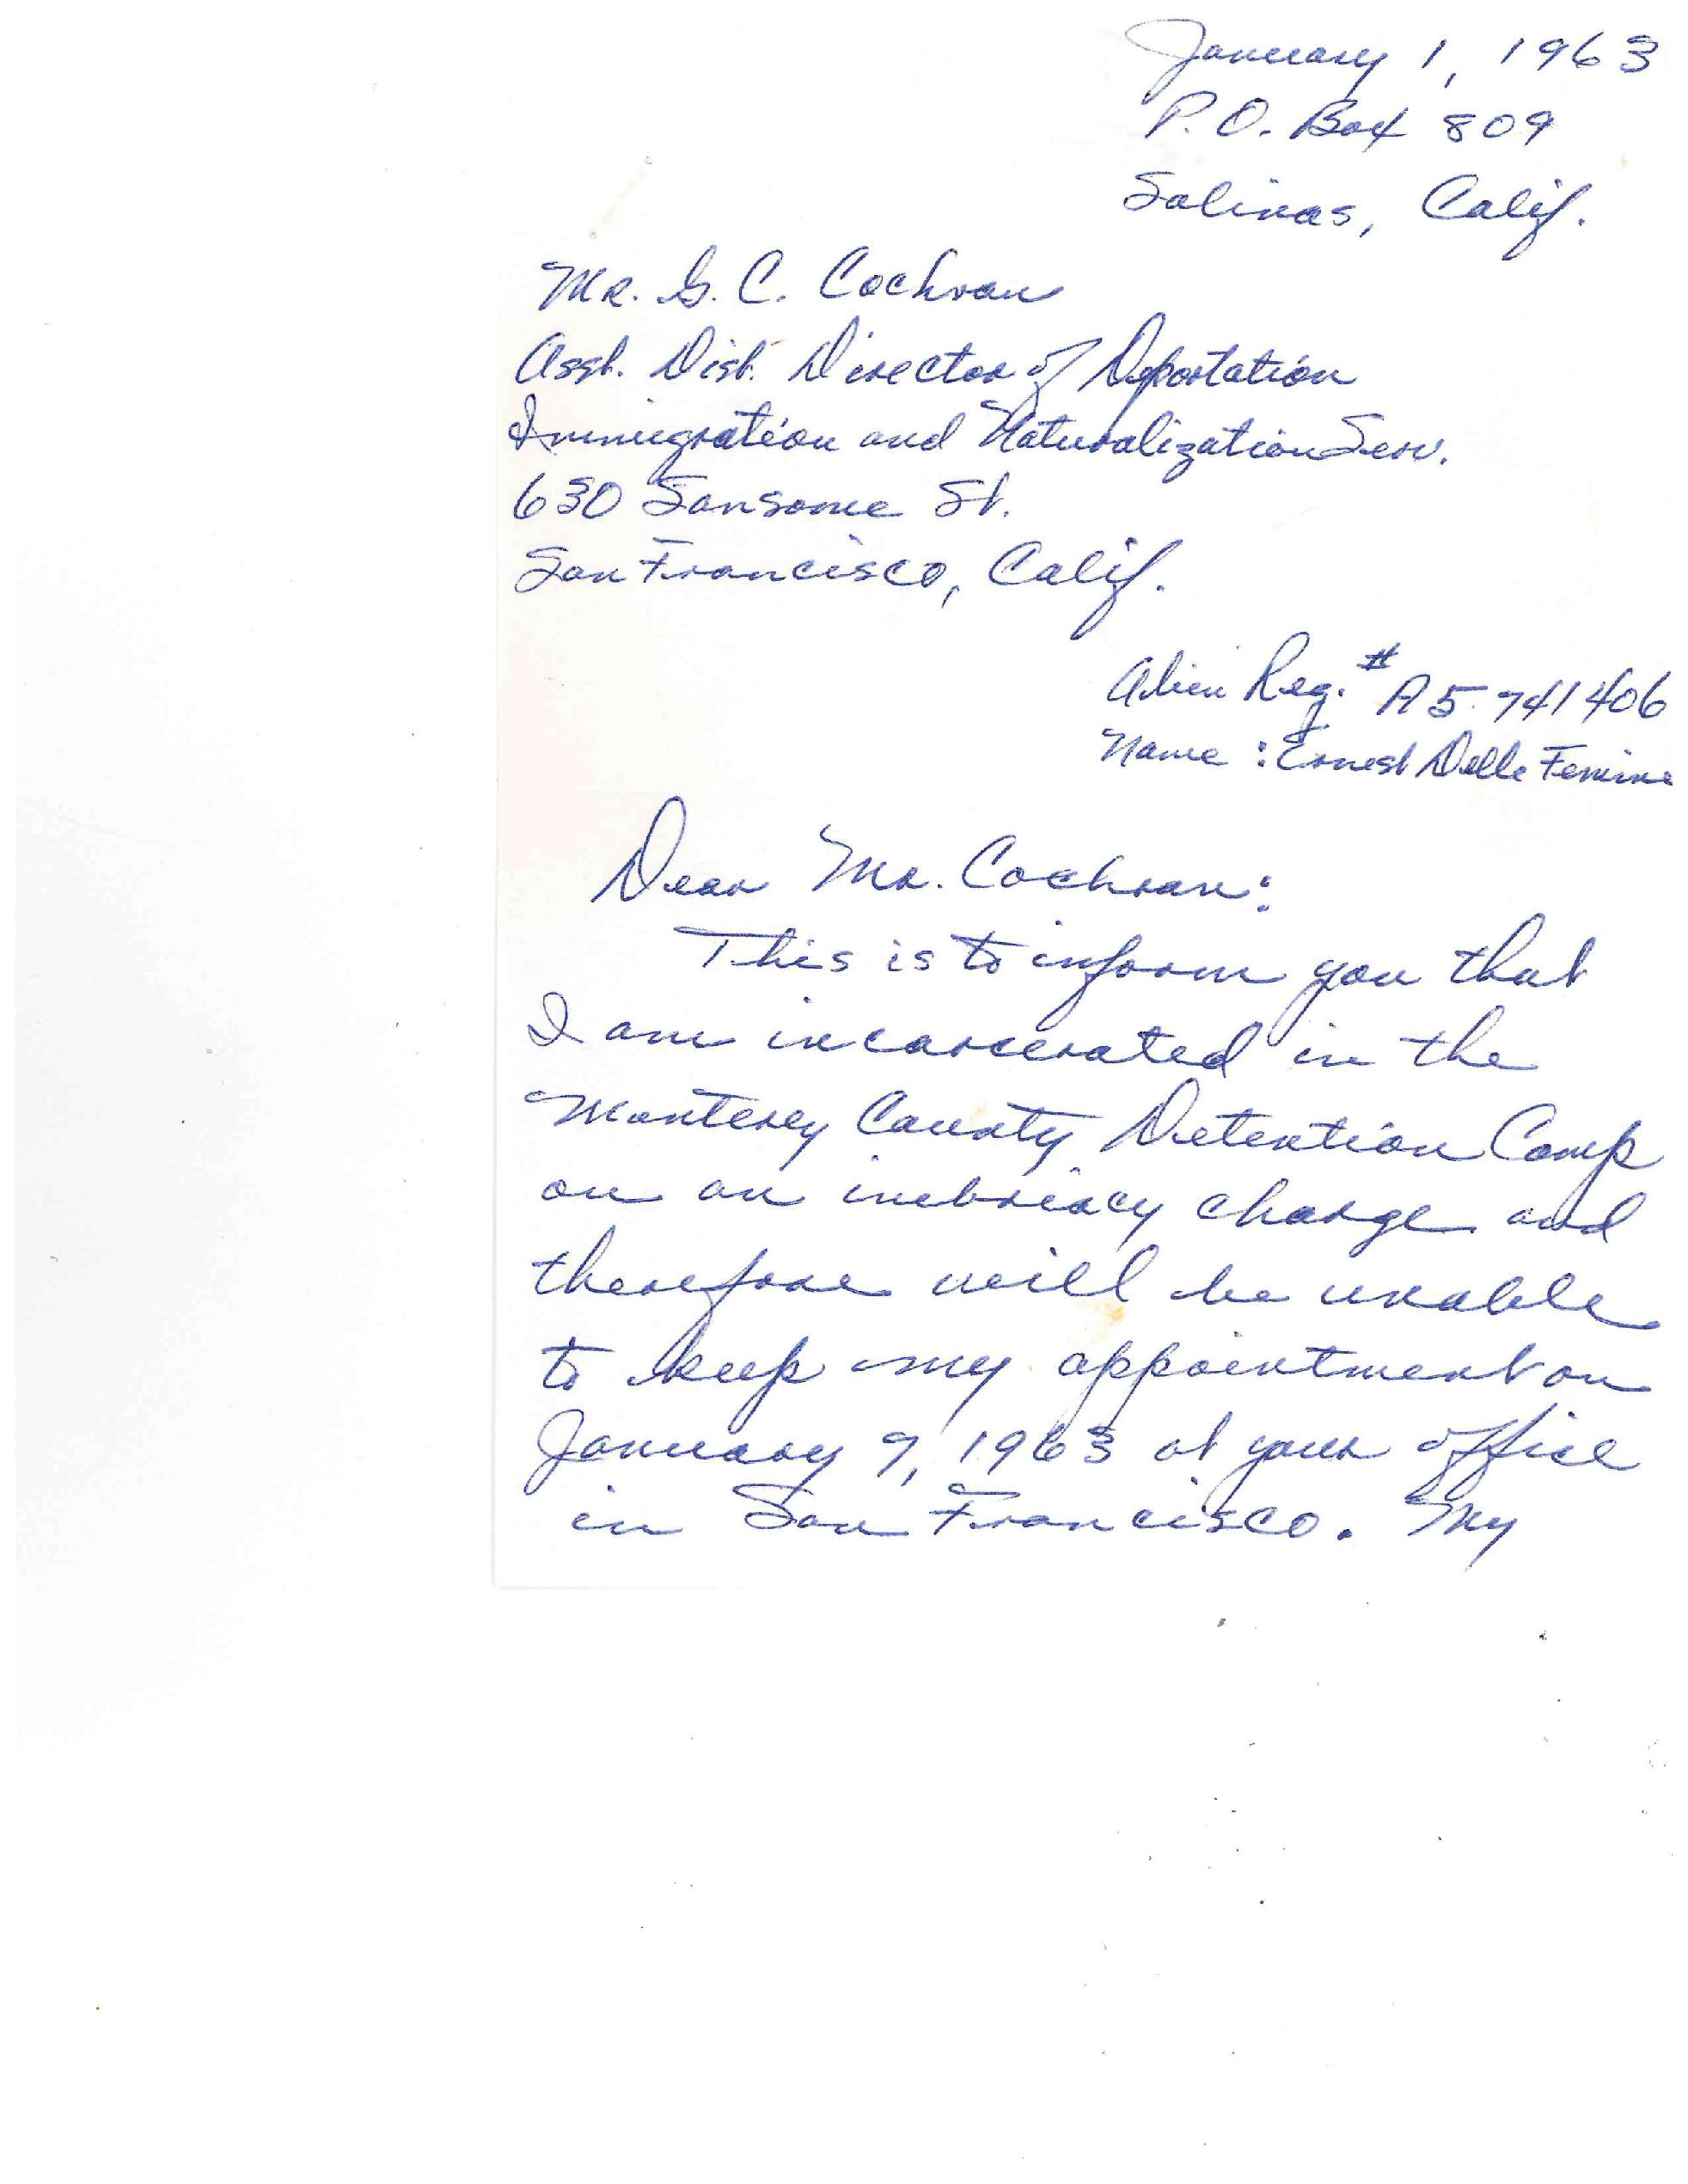 January 1, 1963
P.O. Box 809
Salinas, Calif.
Mr. G. C. Cochran
Asst. Dist. Director of Deportation
Immigration and Naturalization Serv.
630 Sansome St.
San Francisco, Calif.
Alien Reg. # A5 741406
Name : Ernest Delle Femine
Dear Mr. Cochran:
This is to inform you that
I am incarcerated in the
Monterey County Detention Camp
on an inebriacy charge and
therefore will be unable
to keep my appointment on
January 9, 1963 at your office
in San Francisco. My